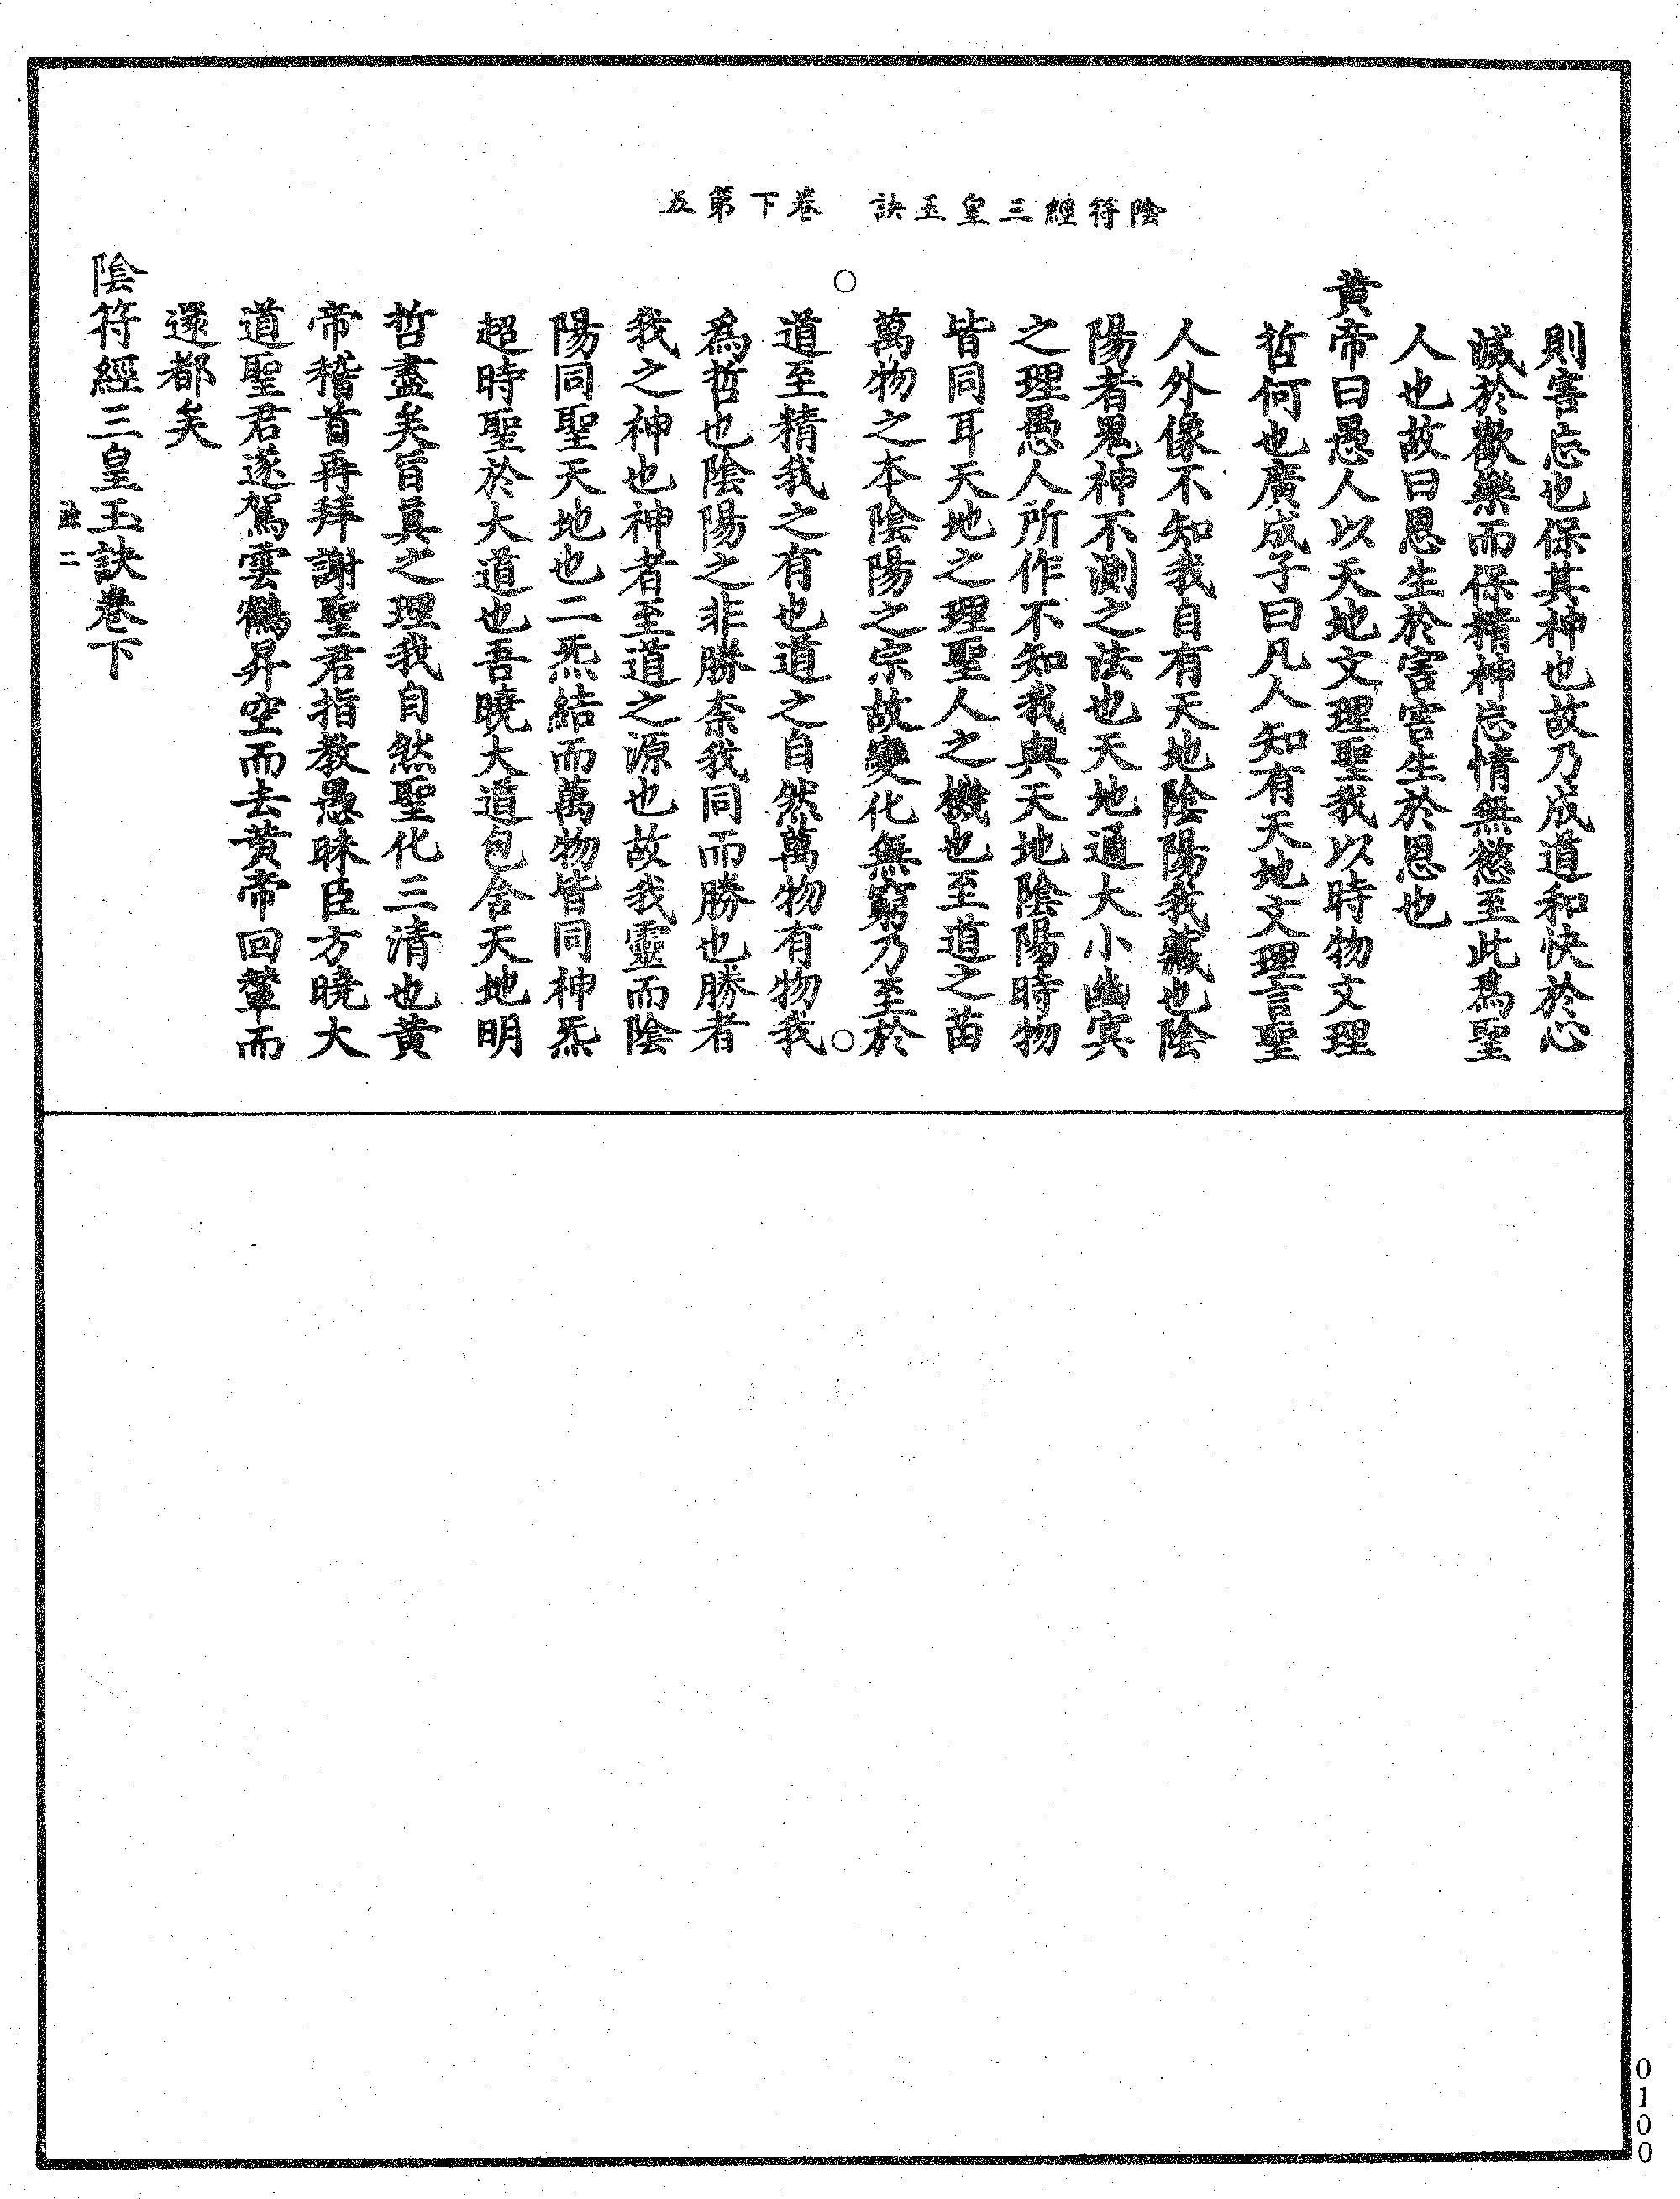 陰符經三皇玉訣　卷下第五
則害忘也保其神也故乃成道和快於心
滅於歡樂而保精神忘情無慾至此爲聖
人也故曰恩生於害害生於恩也
黃帝曰愚人以天地文理聖我以時物文理
哲何也廣成子曰凡人知有天地文理言聖
人外像不知我自有天地陰陽我藏也陰
陽者鬼神不測之法也天地通大小幽冥
之理愚人所作不知我與天地陰陽時物
皆同耳天地之理聖人之機也至道之苗
萬物之本陰陽之宗故變化無窮乃至於
道至精我之有也道之自然萬物有物我
爲哲也陰陽之非勝柰我同而勝也勝者
我之神也神者至道之源也故我靈而陰
陽同聖天地也二炁結而萬物皆同神炁
超時聖於大道也吾曉大道包含天地明
哲盡矣旨真之理我自然聖化三清也黃
帝稽首再拜謝聖君指教愚昧臣方曉大
道聖君遂駕雲鶴昇空而去黃帝回輦而
還都矣
陰符經三皇玉訣卷下
二
0100